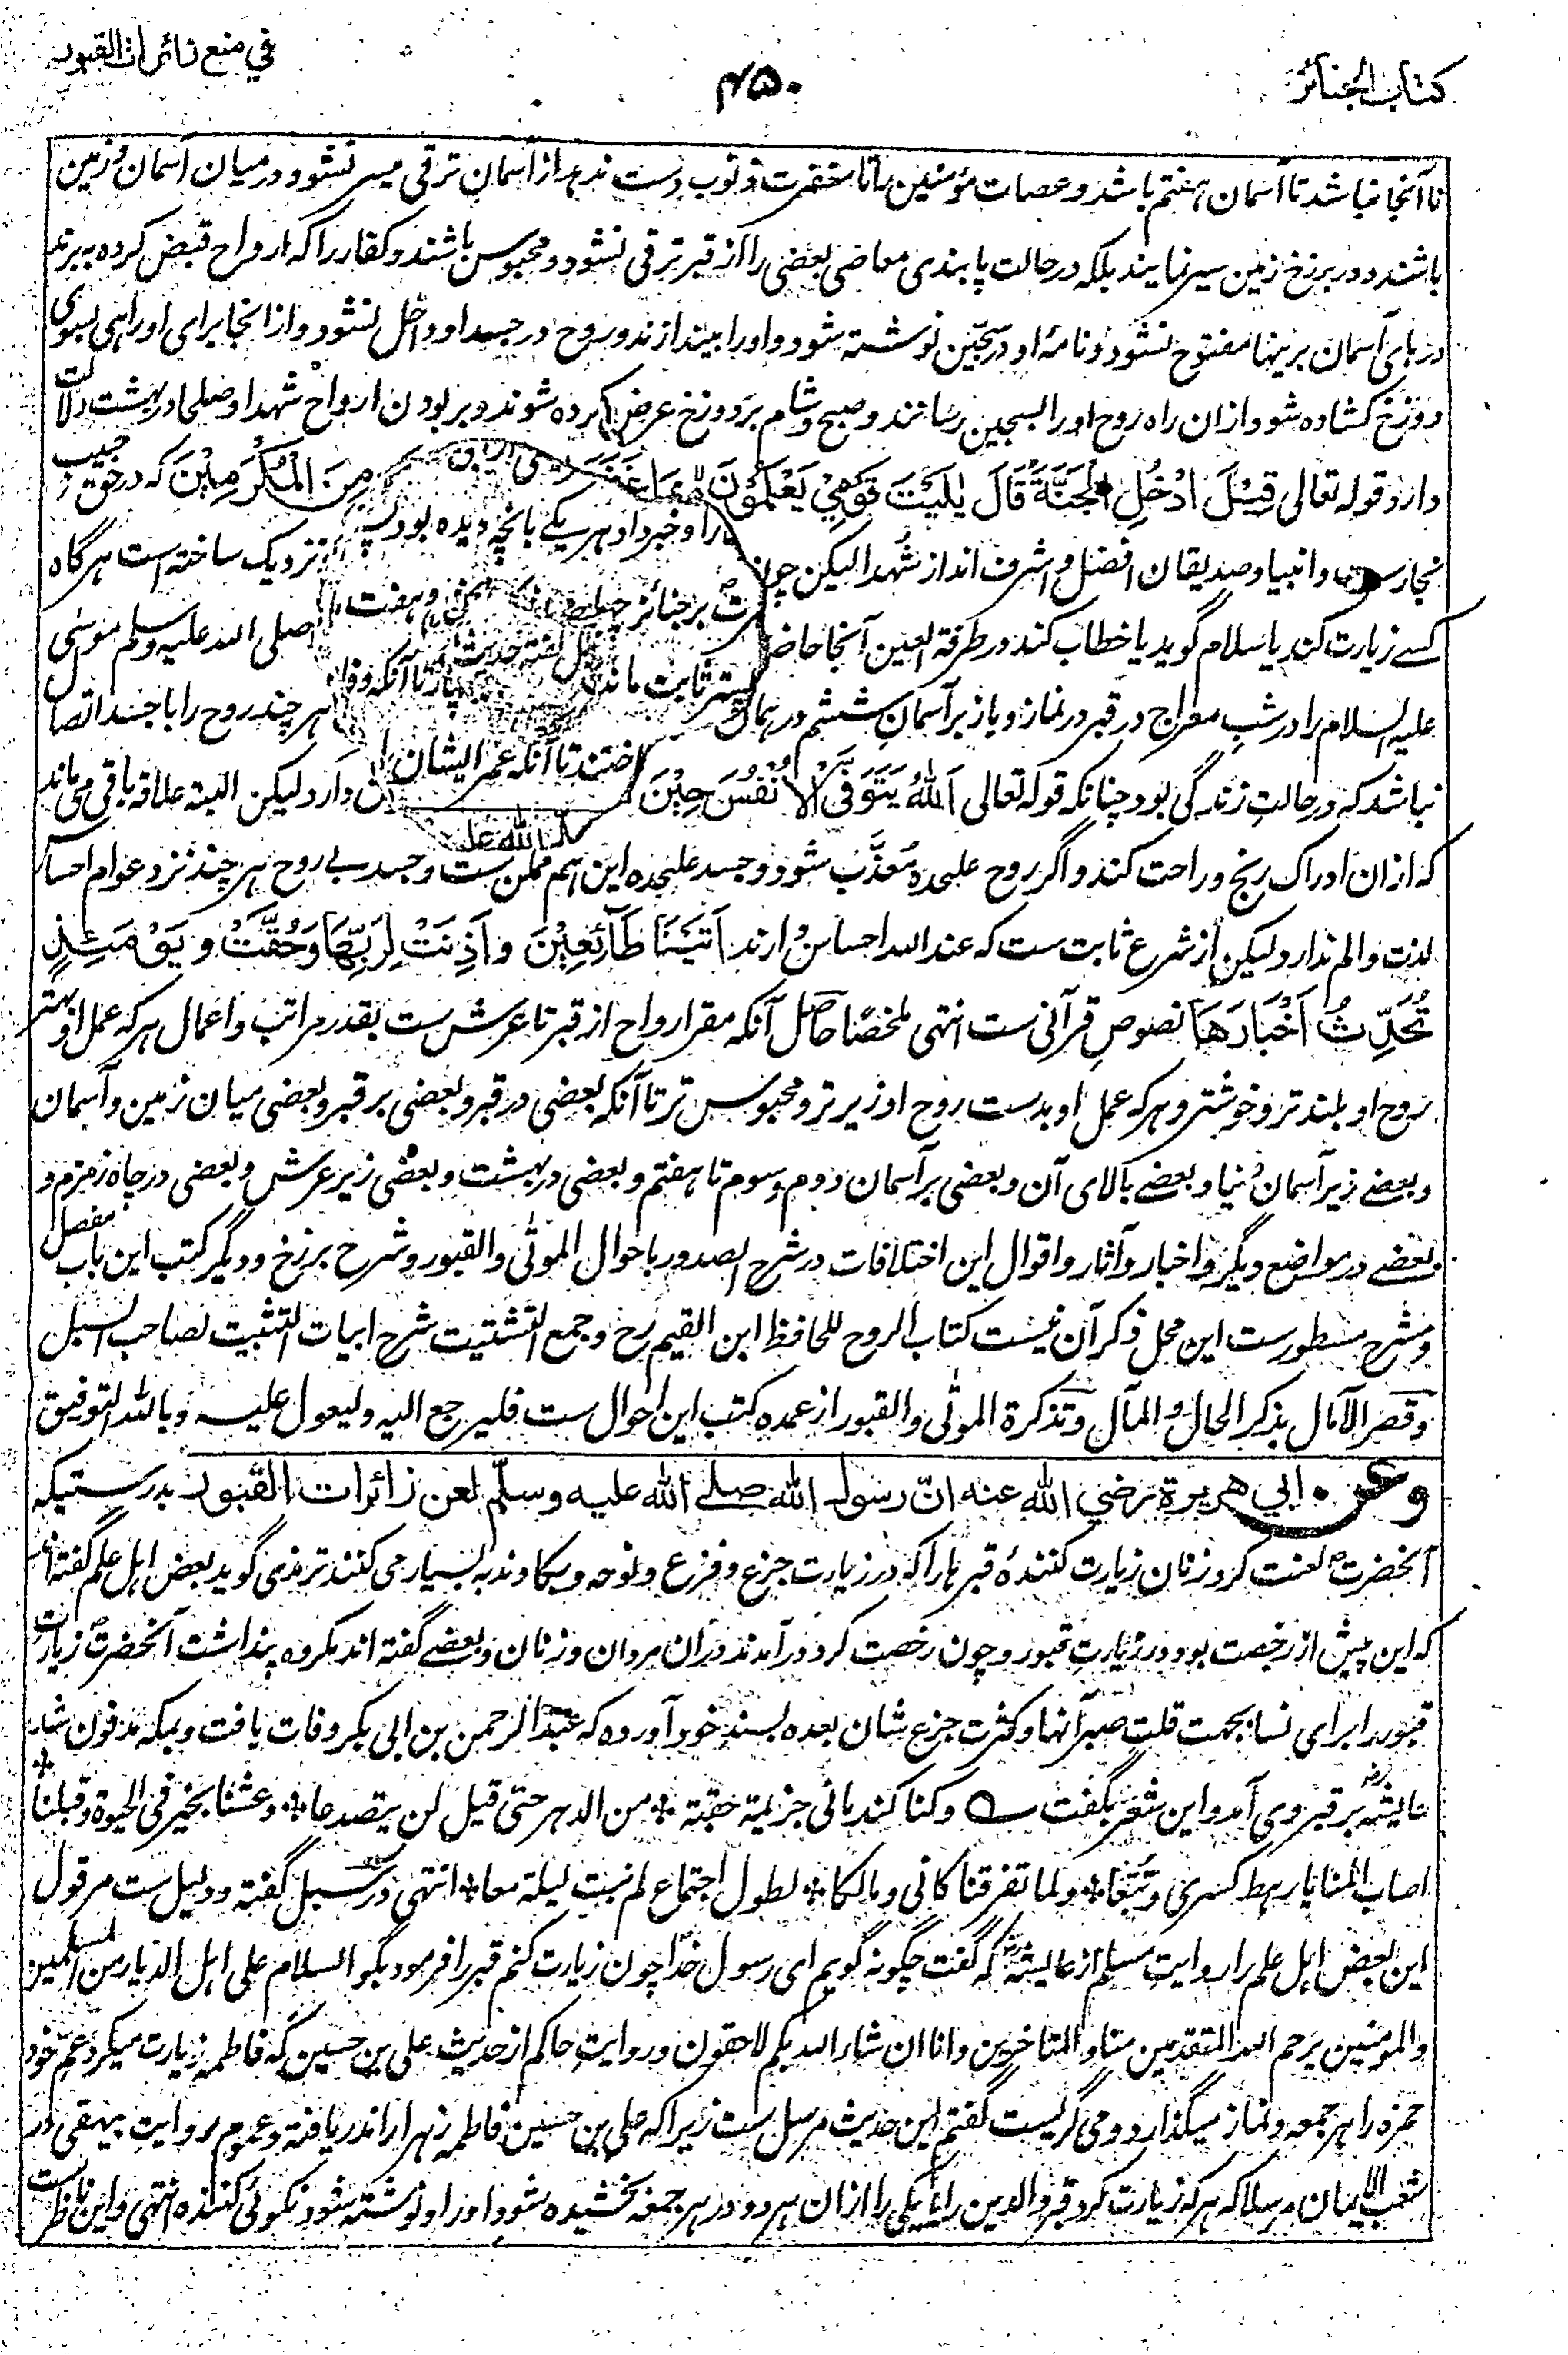 كتاب الجنائز
۴۵۰
في منع زائرات القبور
تا آنجا نباشد تا آسمان هفتم باشد و عصات مؤمنین را تا مغفرت ذنوب دست ندهد از آسمان ترقی میسر نشود و درمیان آسمان و زمین
باشند و در برزخ زمین سیر نمایند بلکه در حالت پابندی معاصی بعضی را از قبر ترقی نشود و محبوس باشند و کفار را که ارواح قبض کرده ببرند
درهای آسمان برینها مفتوح نشود و نامۀ او در سجّین نوشته شود و او را بیندازند و روح در جسد او داخل نشود و از انجا برای او راهی بسوی
دوزخ کشاده شود و ازان راه روح او را بسجین رسانند و صبح و شام بر دوزخ عرض کرده شوند و بر بودن ارواح شهدا و صلحا در بهشت دلالت
دارد قوله تعالی قِيْلَ ادْخُلِ الْجَنَّةَ قَالَ يٰلَيْتَ قَوْمِيْ يَعْلَمُوْنَ بِمَا غَفَرَ مِنَ الْمُكْرَمِيْنَ که در حق حبیب
نجارست و انبیا و صدیقان افضل و اشرف اند از شهدا لیکن نزدیک ساخته است هرگاه
کسے زیارت کند یا سلام گوید یا خطاب کند در طرفة العین آنجا حاضر صلی الله علیه وسلم موسٰی
علیه السلام را در شبِ معراج در قبر در نماز و باز بر آسمانِ ششم در همان هر چند روح را با جسد اتصال
نباشد که در حالتِ زندگی بود چنانکه قوله تعالی اَللّٰهُ يَتَوَفَّى الْاَنْفُسَ حِيْنَ دارد لیکن البته علاقه باقی می ماند
که ازان ادراک رنج و راحت کند و اگر روح علیحده مُعذَّب شود و جسد علیحده این هم ممکن ست و جسد بے روح هر چند نزد عوام احساس
لذت و الم ندارد و لیکن از شرع ثابت ست که عند الله احساس دارند اَتَيْنَا طَآئِعِيْنَ و اَذِنَتْ لِرَبِّهَا وَحُقَّتْ و يَوْمَئِذٍ
تُحَدِّثُ اَخْبَارَهَا نصوصِ قرآنی ست انتهی ملخصًا حاصل آنکه مقر ارواح از قبر تا عرش ست بقدر مراتب و اعمال هر که عمل او بهتر
روح او بلند تر و خوشتر و هر که عمل او بدست روح او زیر تر و محبوس تر تا آنکه بعضی در قبر و بعضی بر قبر و بعضی میان زمین و آسمان
و بعضے زیر آسمان دنیا و بعضے بالای آن و بعضی بر آسمان دوم و سوم تا هفتم و بعضی در بهشت و بعضی زیر عرش و بعضی در چاه زمزم و
بعضے در مواضع دیگر و اخبار و آثار و اقوال این اختلافات در شرح الصدور باحوال الموتٰی و القبور و شرح برزخ و دیگر کتب این باب مفصل
و مشرح مسطور ست این محل ذکر آن نیست کتاب الروح للحافظ ابن القیم رح و جمع التشتیت شرح ابیات التثبیت لصاحب السبل
و قصر الآمال بذکر الحال و المآل و تذکرة الموتٰی و القبور از عمده کتب این احوال ست فلیرجع الیه و لیعول علیه و بالله التوفیق
وعن ابي هريرة رضي الله عنه انّ رسول الله صلے الله عليه وسلّم لعن زائرات القبور بدرستیکه
آنحضرت لعنت کرد زنان زیارت کنندۀ قبرها را که در زیارت جزع و فزع و نوحه و بکا و ندبه بسیار می کنند ترمذی گوید بعض اهل علم گفته اند
که این پیش از رخصت بود در زیارتِ قبور و چون رخصت کرد در آمدند دران مردان و زنان و بعضے گفته اند مکروه پنداشت آنحضرت زیارت
قبور را برای نسا بجهت قلتِ صبر آنها و کثرت جزع شان بعده بسند خود آورده که عبد الرحمن بن ابی بکر وفات یافت و بمکه مدفون شد
عایشه بر قبر وی آمد و این شعر بگفت وکنا کندمانی جزیمة حقبة * من الدهر حتی قیل لن یتصدعا * وعشنا بخیر فی الحیوة وقبلنا *
اصاب المنایا رهط کسری وتبعا * ولما تفرقنا کانی ومالکا * لطول اجتماع لم نبت لیلة معا * انتهی در سبل گفته و دلیل ست مر قول
این بعض اهل علم را روایتِ مسلم از عایشه که گفت چگونه گویم ای رسول خدا چون زیارت کنم قبر را فرمود بگو السلام علی اهل الدیار من المسلمین
والمومنین یرحم الله المتقدمین منا والمتاخرین وانا ان شاء الله بکم لاحقون و روایتِ حاکم از حدیث علی بن حسین که فاطمه زیارت میکرد عمّ خود
حمزه را هر جمعه و نماز میگذارد و می گریست گفتم این حدیث مرسل ست زیرا که علی بن حسین فاطمه زهرا را نه دریافته و عموم روایتِ بیهقی در
شعب الایمان مرسلا که هر که زیارت کرد قبر والدین را یا یکی را ازان هر دو در هر جمعه بخشیده شود او را و نوشته شود نکوئی کننده انتهی و این ناظر ست